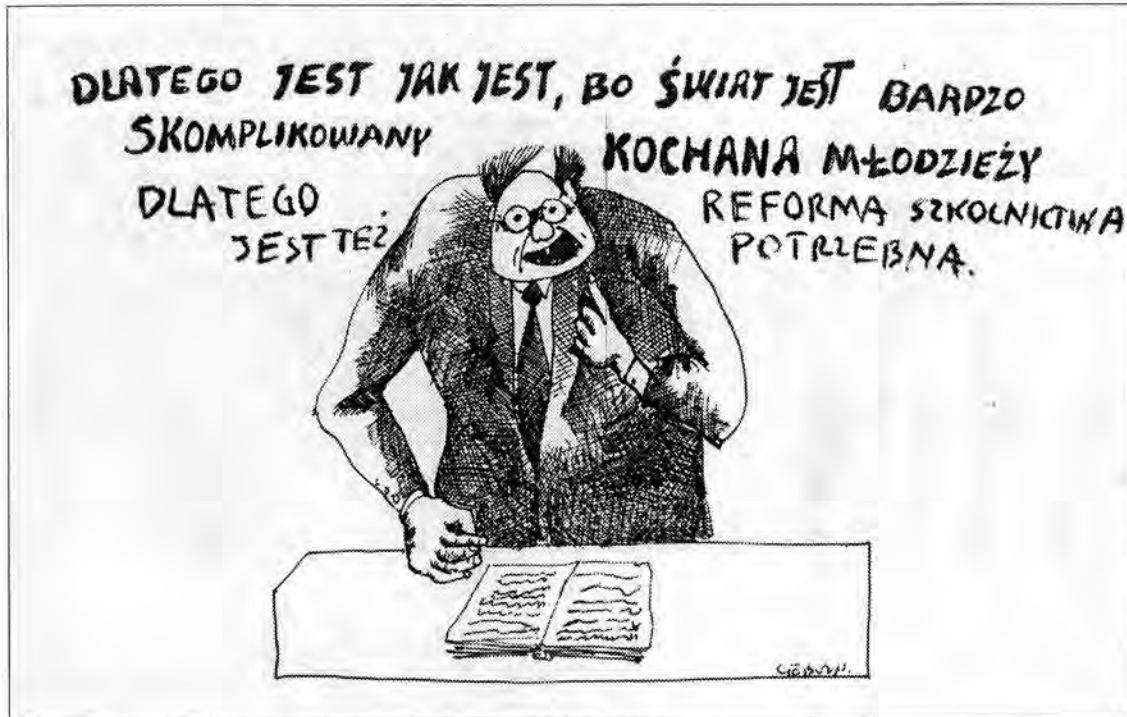 DLATEGO JEST JAK JEST, BO ŚWIAT JEST BARDZO
SKOMPLIKOWANY KOCHANA MŁODZIEŻY
DLATEGO REFORMA SZKOLNICTWA
JEST TEŻ POTRZEBNA.